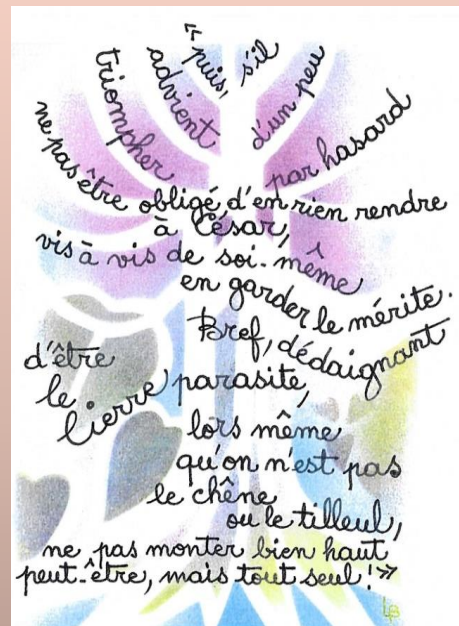 « puis, s'il
advient d'un peu
triompher par hasard
ne pas être obligé d'en rien rendre
à César,
vis à vis de soi-même
en garder le mérite.
Bref, dédaignant
d'être
le
lierre parasite,
lors même
qu'on n'est pas
le chêne
ou le tilleul,
ne pas monter bien haut
peut-être, mais tout seul ! »